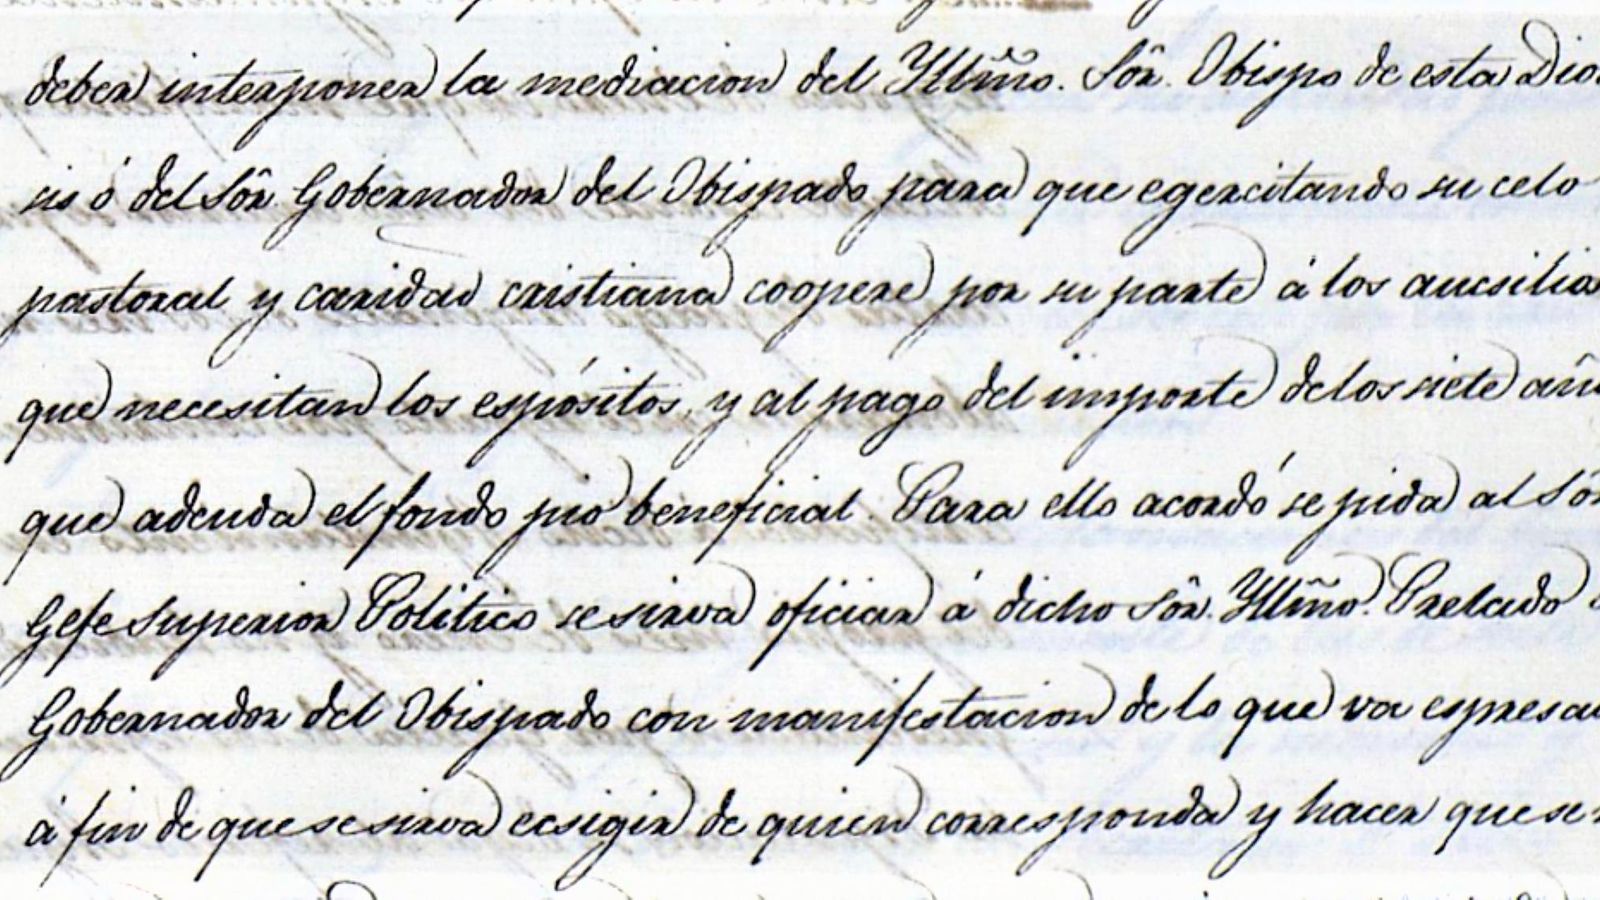 deber interponer la mediacion del Yllm̃o. Sôr. Obispo de esta Dio
sis ó del Sôr. Gobernador del Obispado para que egercitando su celo
pastoral y caridad cristiana coopere por su parte á los aucsilios
que necesitan los espósitos, y al pago del importe de los siete añ
que adeuda el fondo pio beneficial. Para ello acordó se pida al Sôr
Gefe Superior Politico se sirva oficiar á dicho Sôr. Yllm̃o. Prelado
Gobernador del Obispado con manifestacion de lo que va espresa
á fin de que se sirva ecsigir de quien corresponda y hacer que se